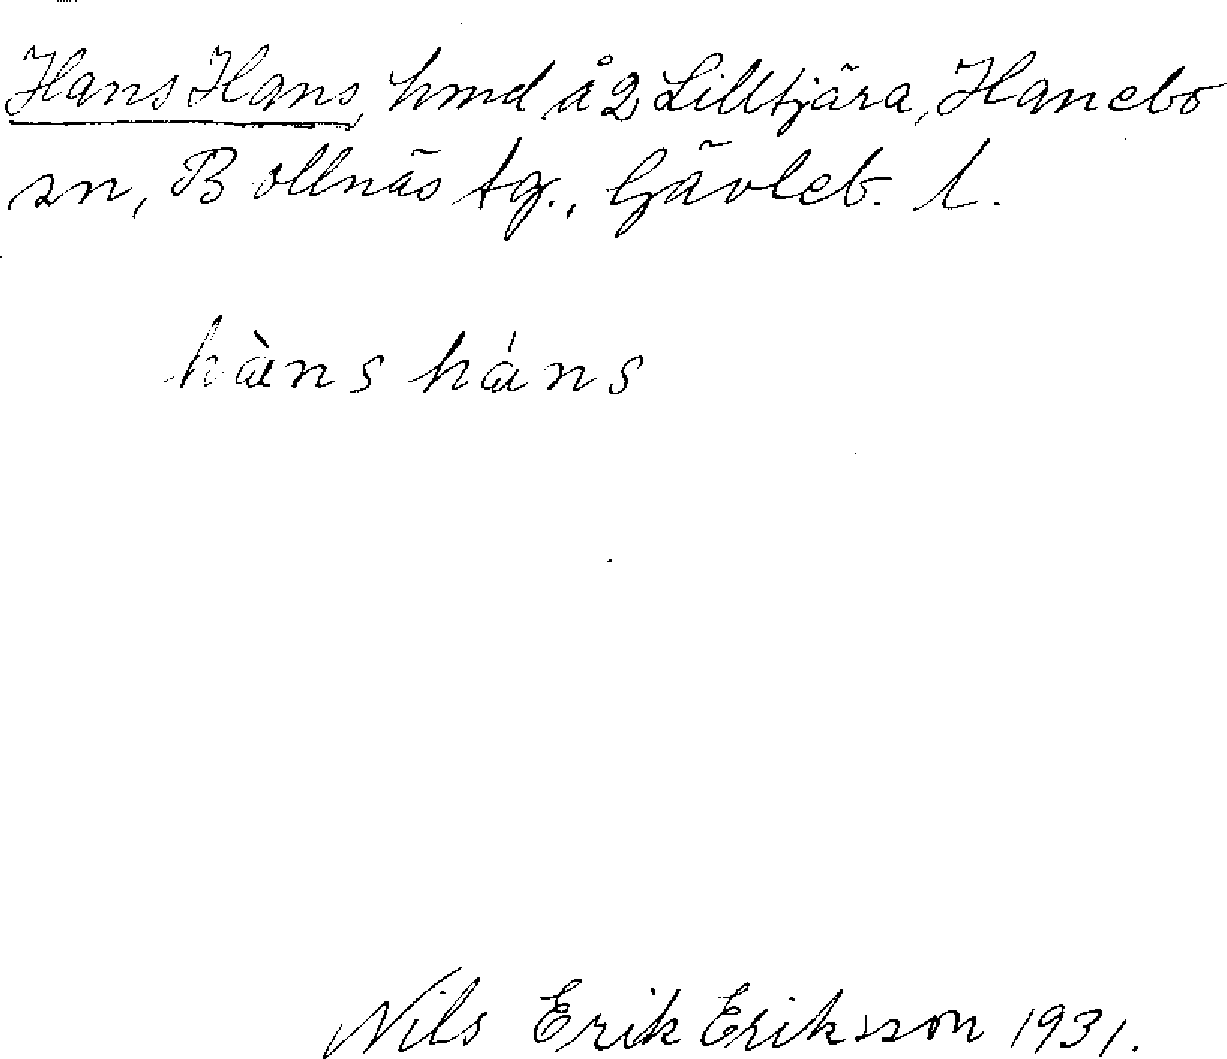 Hans Hans, hmd å 2 Lilltjära, Hanebo
sn, Bollnäs tg., Gävleb. l.
hàns háns
Nils Erik Eriksson 1931.